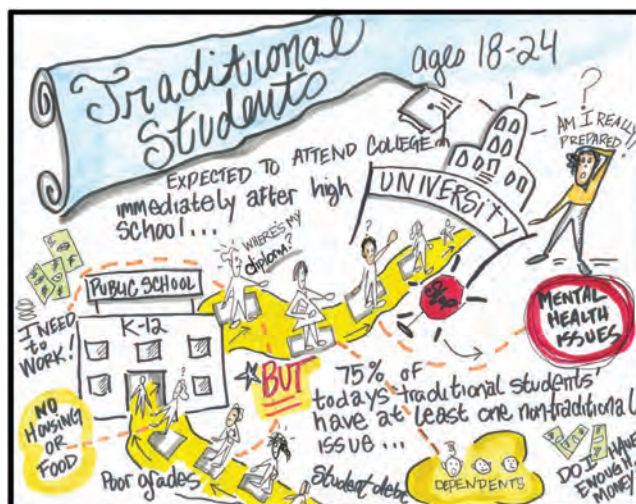 Traditional
Students
ages 18-24
?
AM I REALLY
PREPARED?
EXPECTED TO ATTEND COLLEGE
immediately after high
school...
UNIVERSITY
WHERE'S MY
diploma?
?
PUBLIC SCHOOL
K-12
I NEED
to
WORK!
MENTAL
HEALTH
ISSUES
BUT
75% of
todays 'traditional students'
have at least one nontraditional
issue...
NO
HOUSING
OR
FOOD
Poor grades
Student debt
DEPENDENTS
DO I HAVE
ENOUGH
MONEY